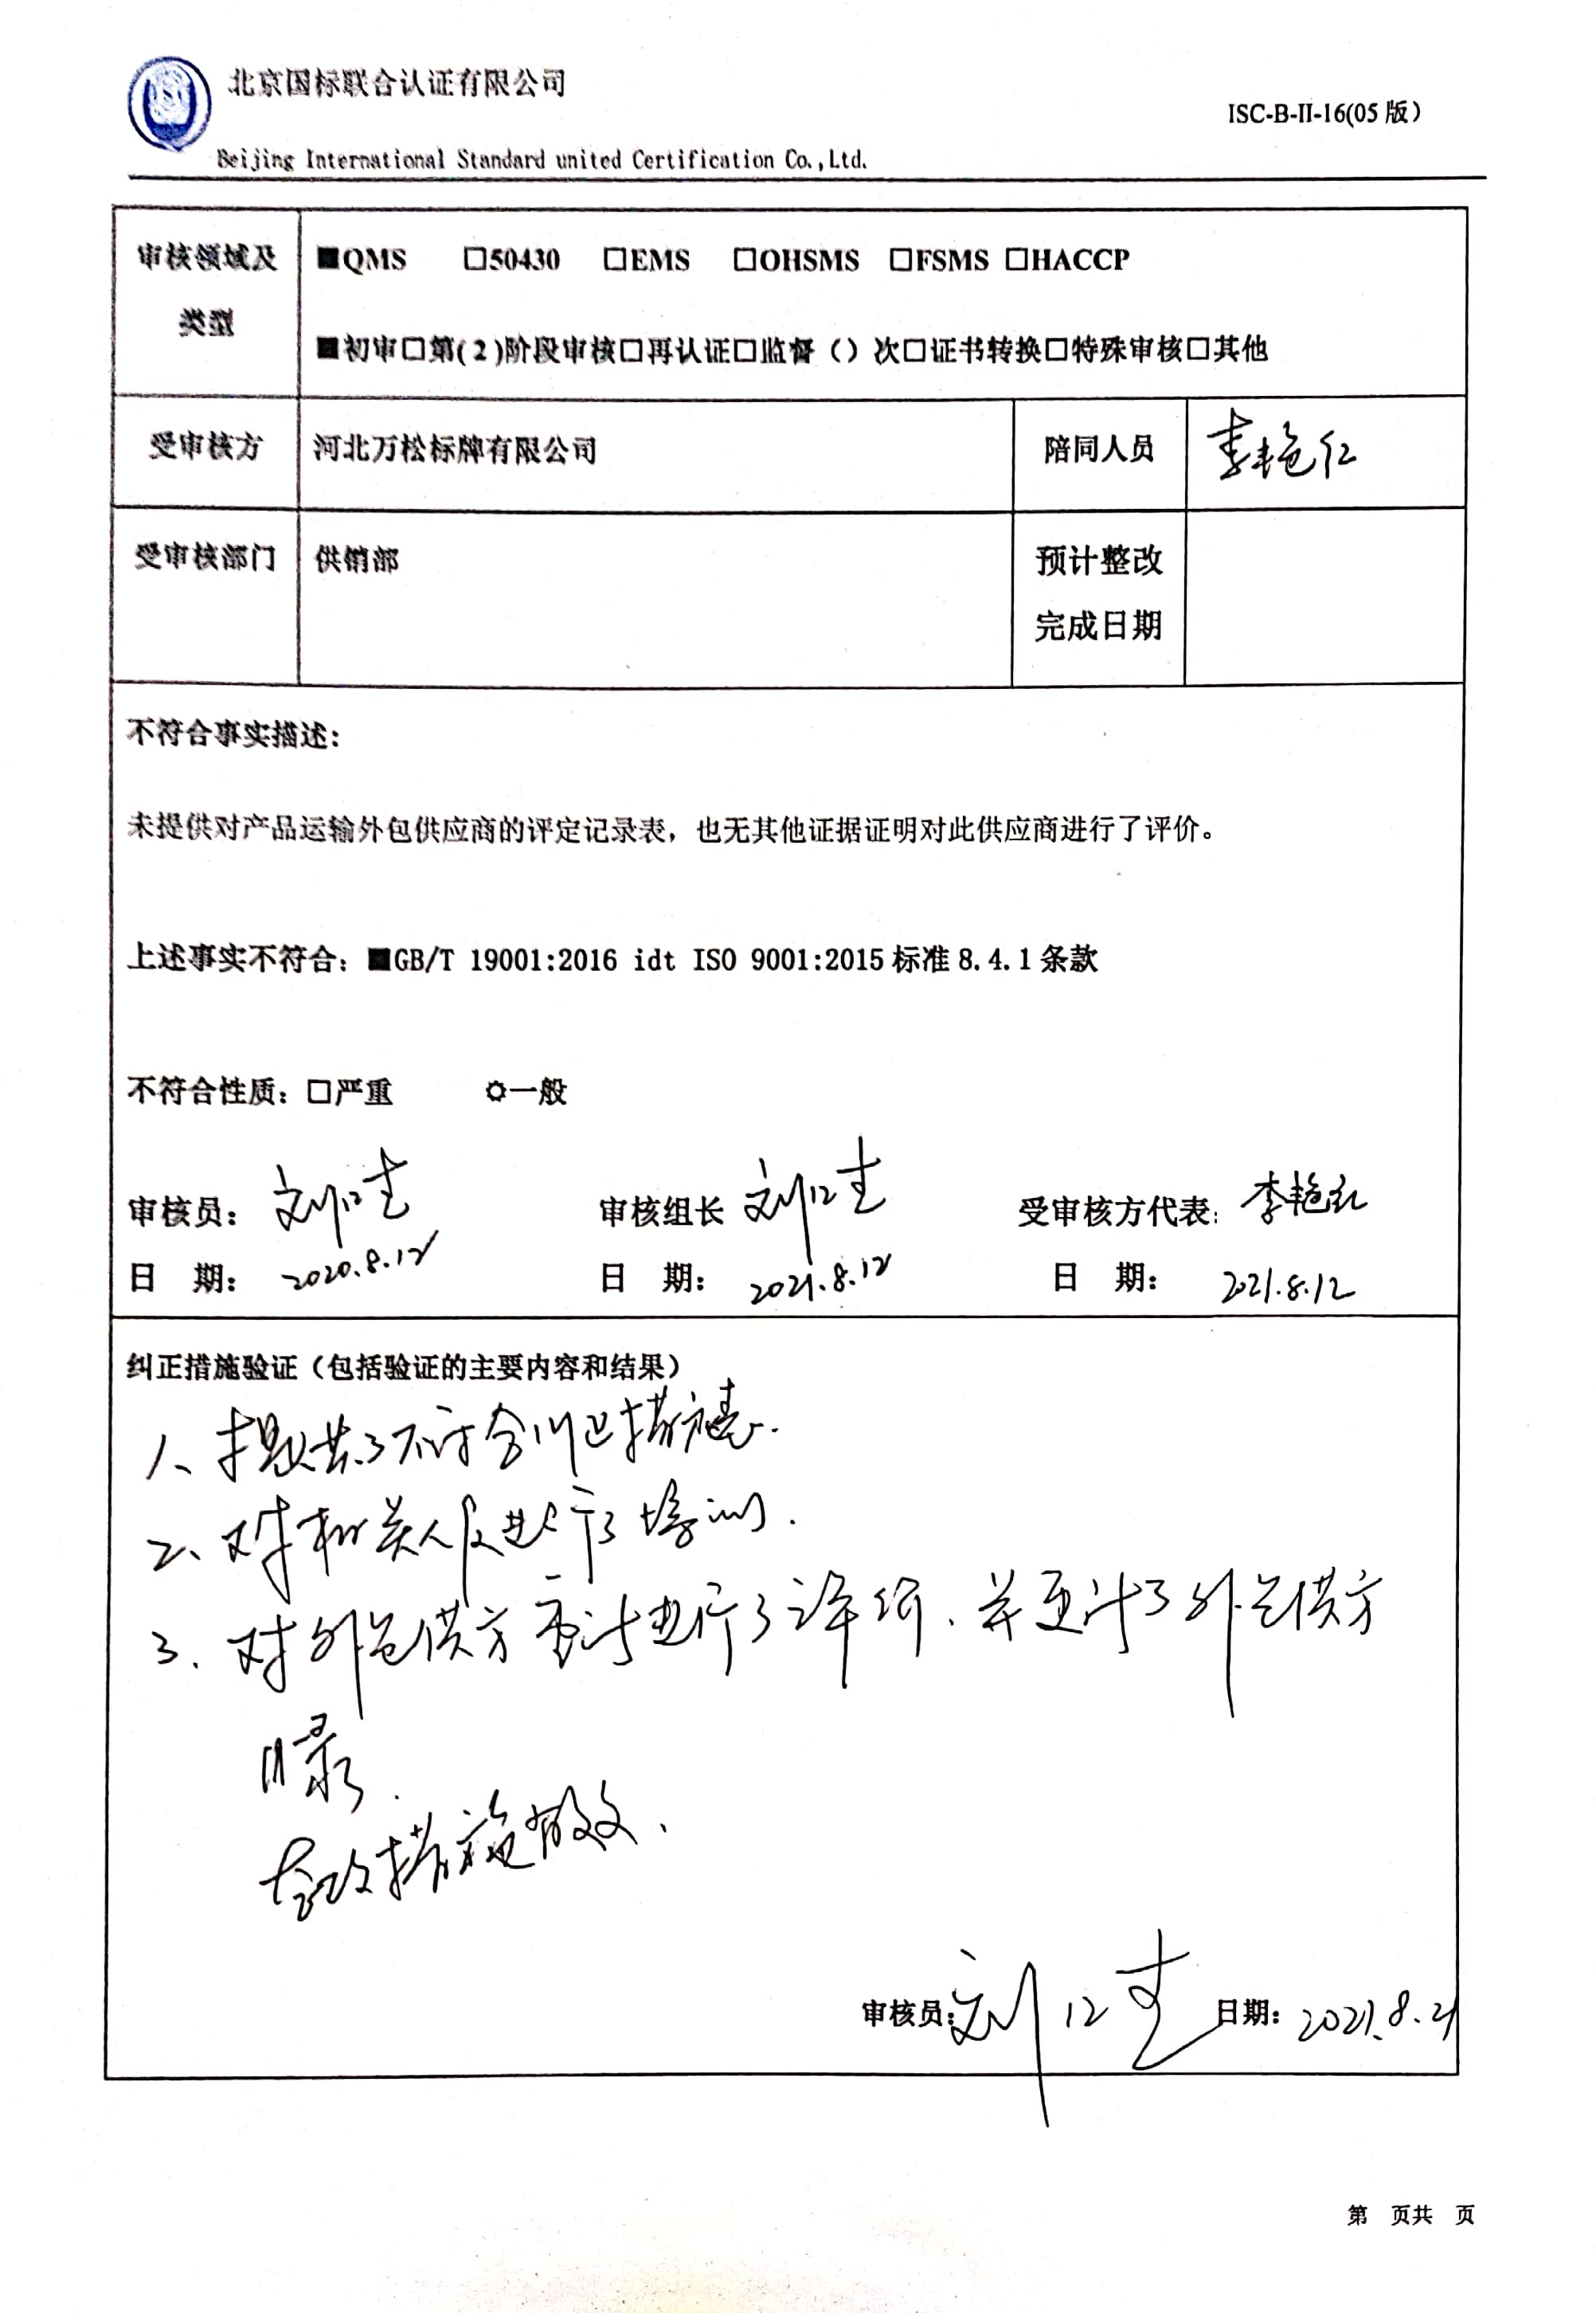 北京国标联合认证有限公司
ISC-B-II-16(05 版)
Beijing International Standard united Certification Co.,Ltd.
审核领域及类型
■QMS □50430 □EMS □OHSMS □FSMS □HACCP
■初审□第(2)阶段审核□再认证□监督（）次□证书转换□特殊审核□其他
受审核方 河北万松标牌有限公司 陪同人员 李艳红
受审核部门 供销部 预计整改
完成日期
不符合事实描述：
未提供对产品运输外包供应商的评定记录表，也无其他证据证明对此供应商进行了评价。
上述事实不符合：■GB/T 19001:2016 idt ISO 9001:2015 标准 8.4.1 条款
不符合性质：□严重 ✡一般
审核员： 审核组长 受审核方代表: 李艳红
日 期： 2020.8.12 日 期： 2021.8.12 日 期： 2021.8.12
纠正措施验证（包括验证的主要内容和结果）
1、提供了不符合纠正措施表.
2、对相关人员进行了培训.
3、对外包供方重新进行了评价、并更新了外包供方
目录.
整改措施有效.
审核员: 日期: 2021.8.21
第 页共 页